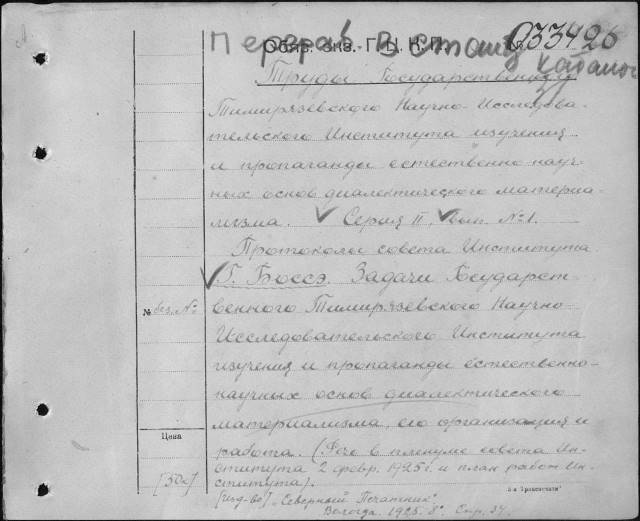 Перераб. в станд. 93342б
Обяз. экз. Г. Ц. К. П.
каталог
Труды Государственного
Тимирязевского Научно-Исследова-
тельского Института изучения
и пропаганды естественно-науч-
ных основ диалектического материа-
лизма. Серия II, вып. №1.
Протоколы совета Института.
Г. Боссэ. Задачи Государст-
венного Тимирязевского Научно-
№ без.№
Исследовательского Института
изучения и пропаганды естественно-
научных основ диалектического
материализма, его организация и
Цена
работа. (Речь в пленуме совета Ин-
ститута 2 февр. 1925 г. и план работ Ин-
ститута).
[50к]
[Изд-во] „Северный Печатник".
Вологда. 1925. 8°. Стр. 37.